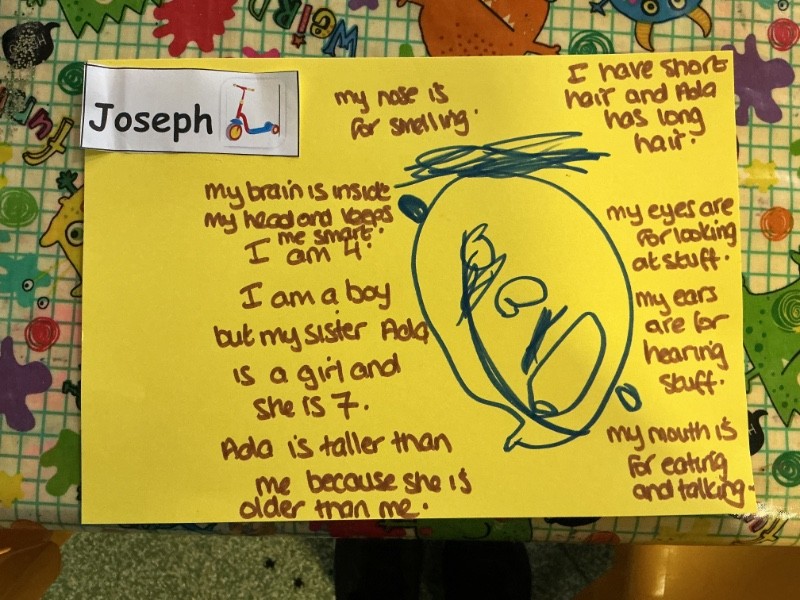 Joseph
my nose is
for smelling.
I have short
hair and Ada
has long
hair.
my brain is inside
my head and keeps
me smart.
I am 4.
I am a boy
but my sister Ada
is a girl and
she is 7.
Ada is taller than
me because she is
older than me.
my eyes are
for looking
at stuff.
my ears
are for
hearing
stuff.
my mouth is
for eating
and talking.